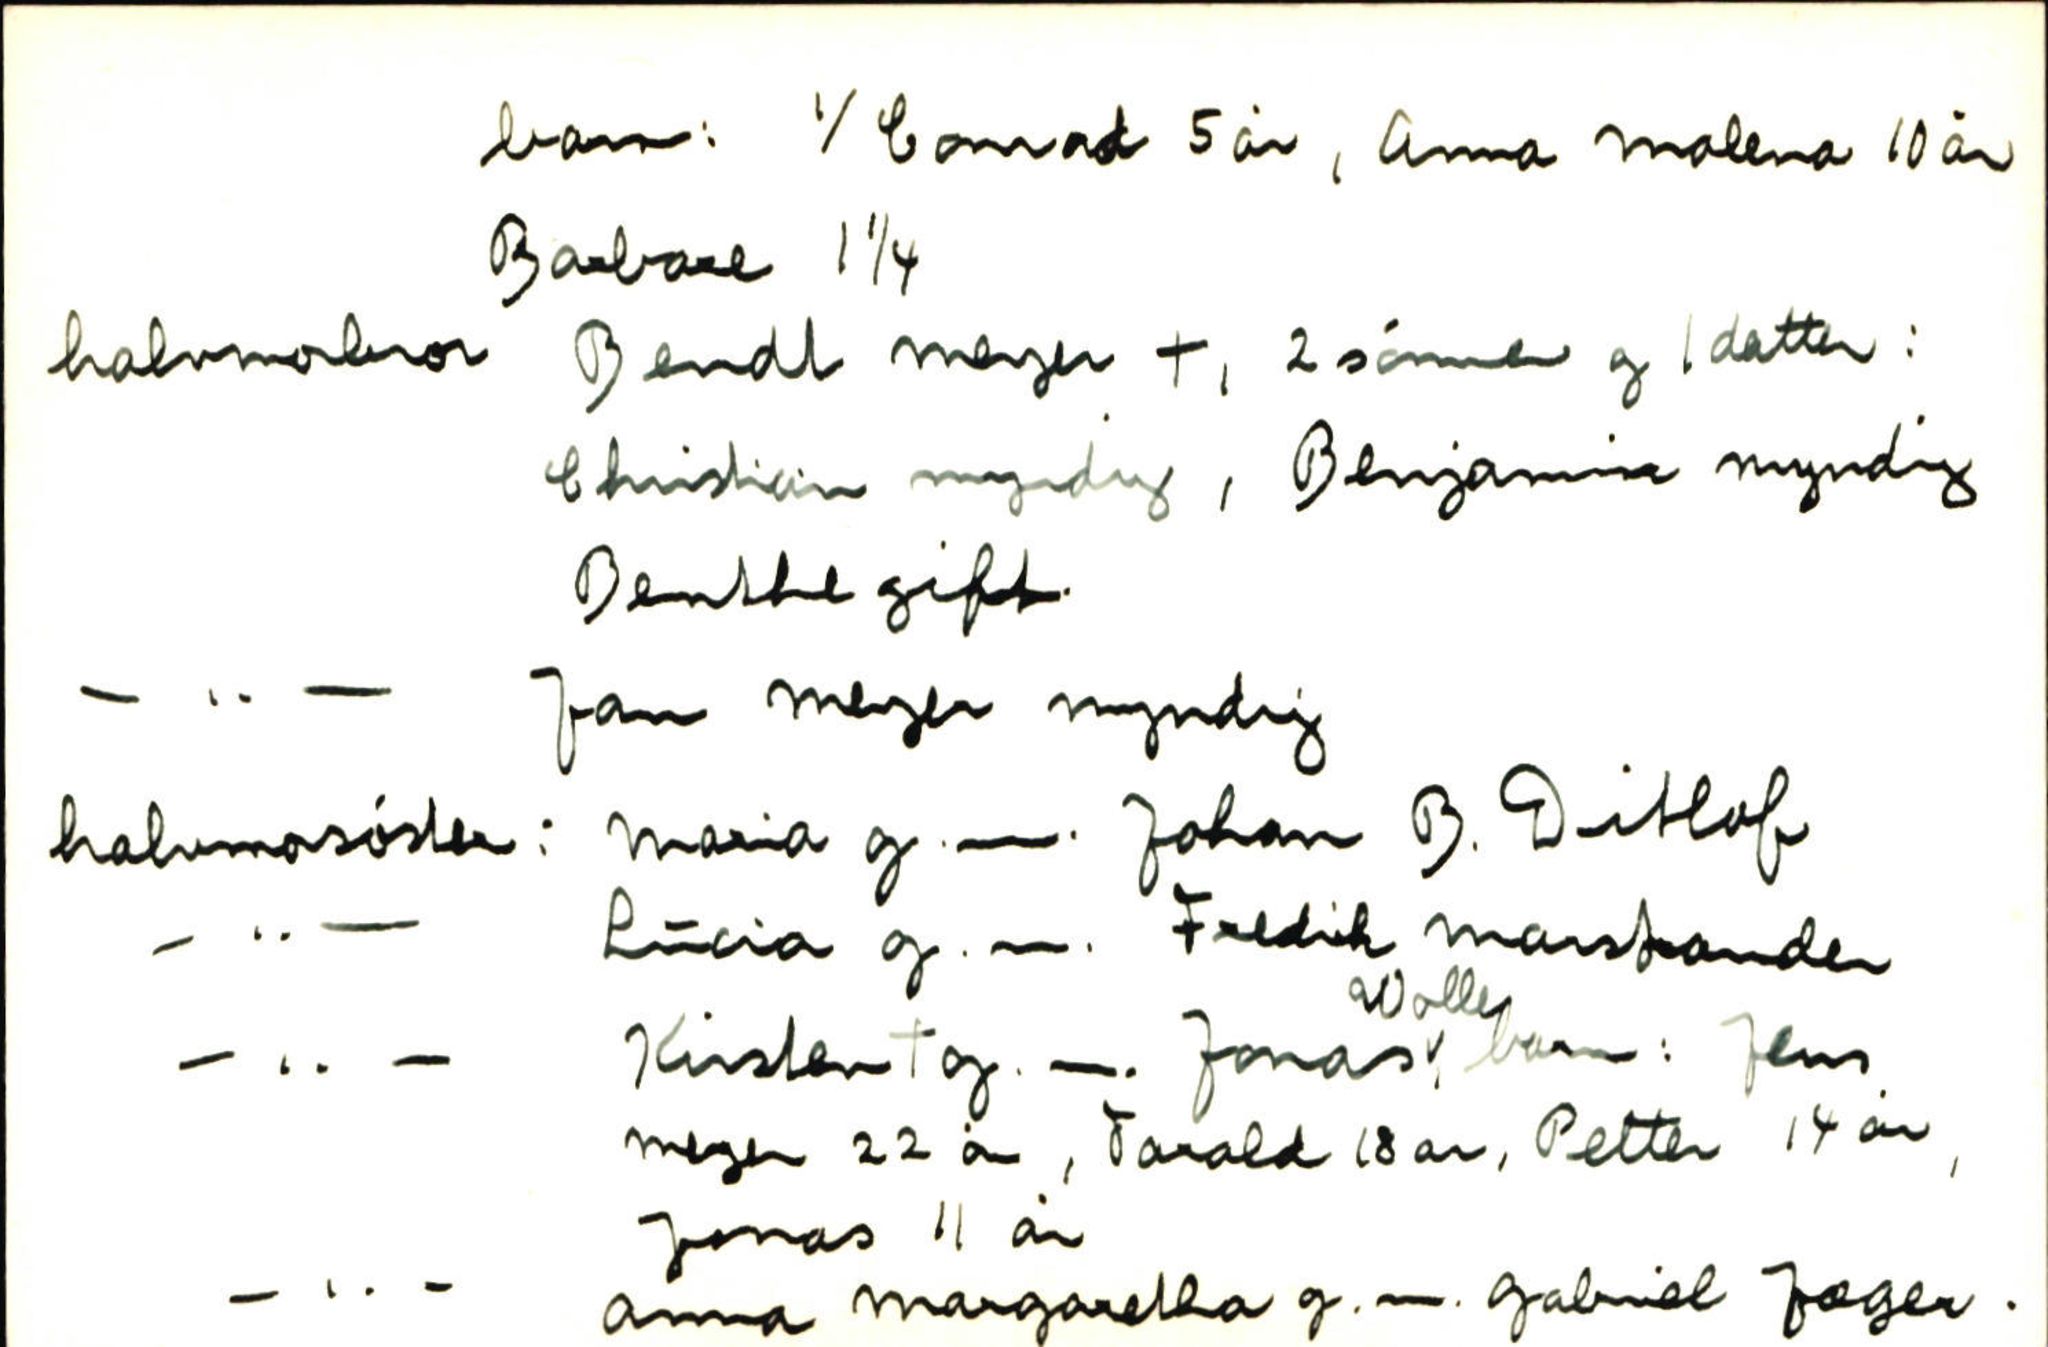 barn: 1/ Conrad 5 år, Anna Malena 10 år
Barbare 1 1/4
halvmorbror Bendt Meyer +, 2 sönner og 1 datter:
Christian myndig, Benjamin myndig
Benthe gift.
— " — Jan Meyer myndig
halvmosöster: Maria g. m. Johan B. Ditlof
— " — Lucia g. m. Fredrik Marstrander
— " — Kirsten + g. m. Jonas Wolle, barn: Jens
Meyer 22 år, Tarald 18 år, Petter 14 år,
Jonas 11 år
— " — Anna Margaretha g. m. Gabriel Jæger.